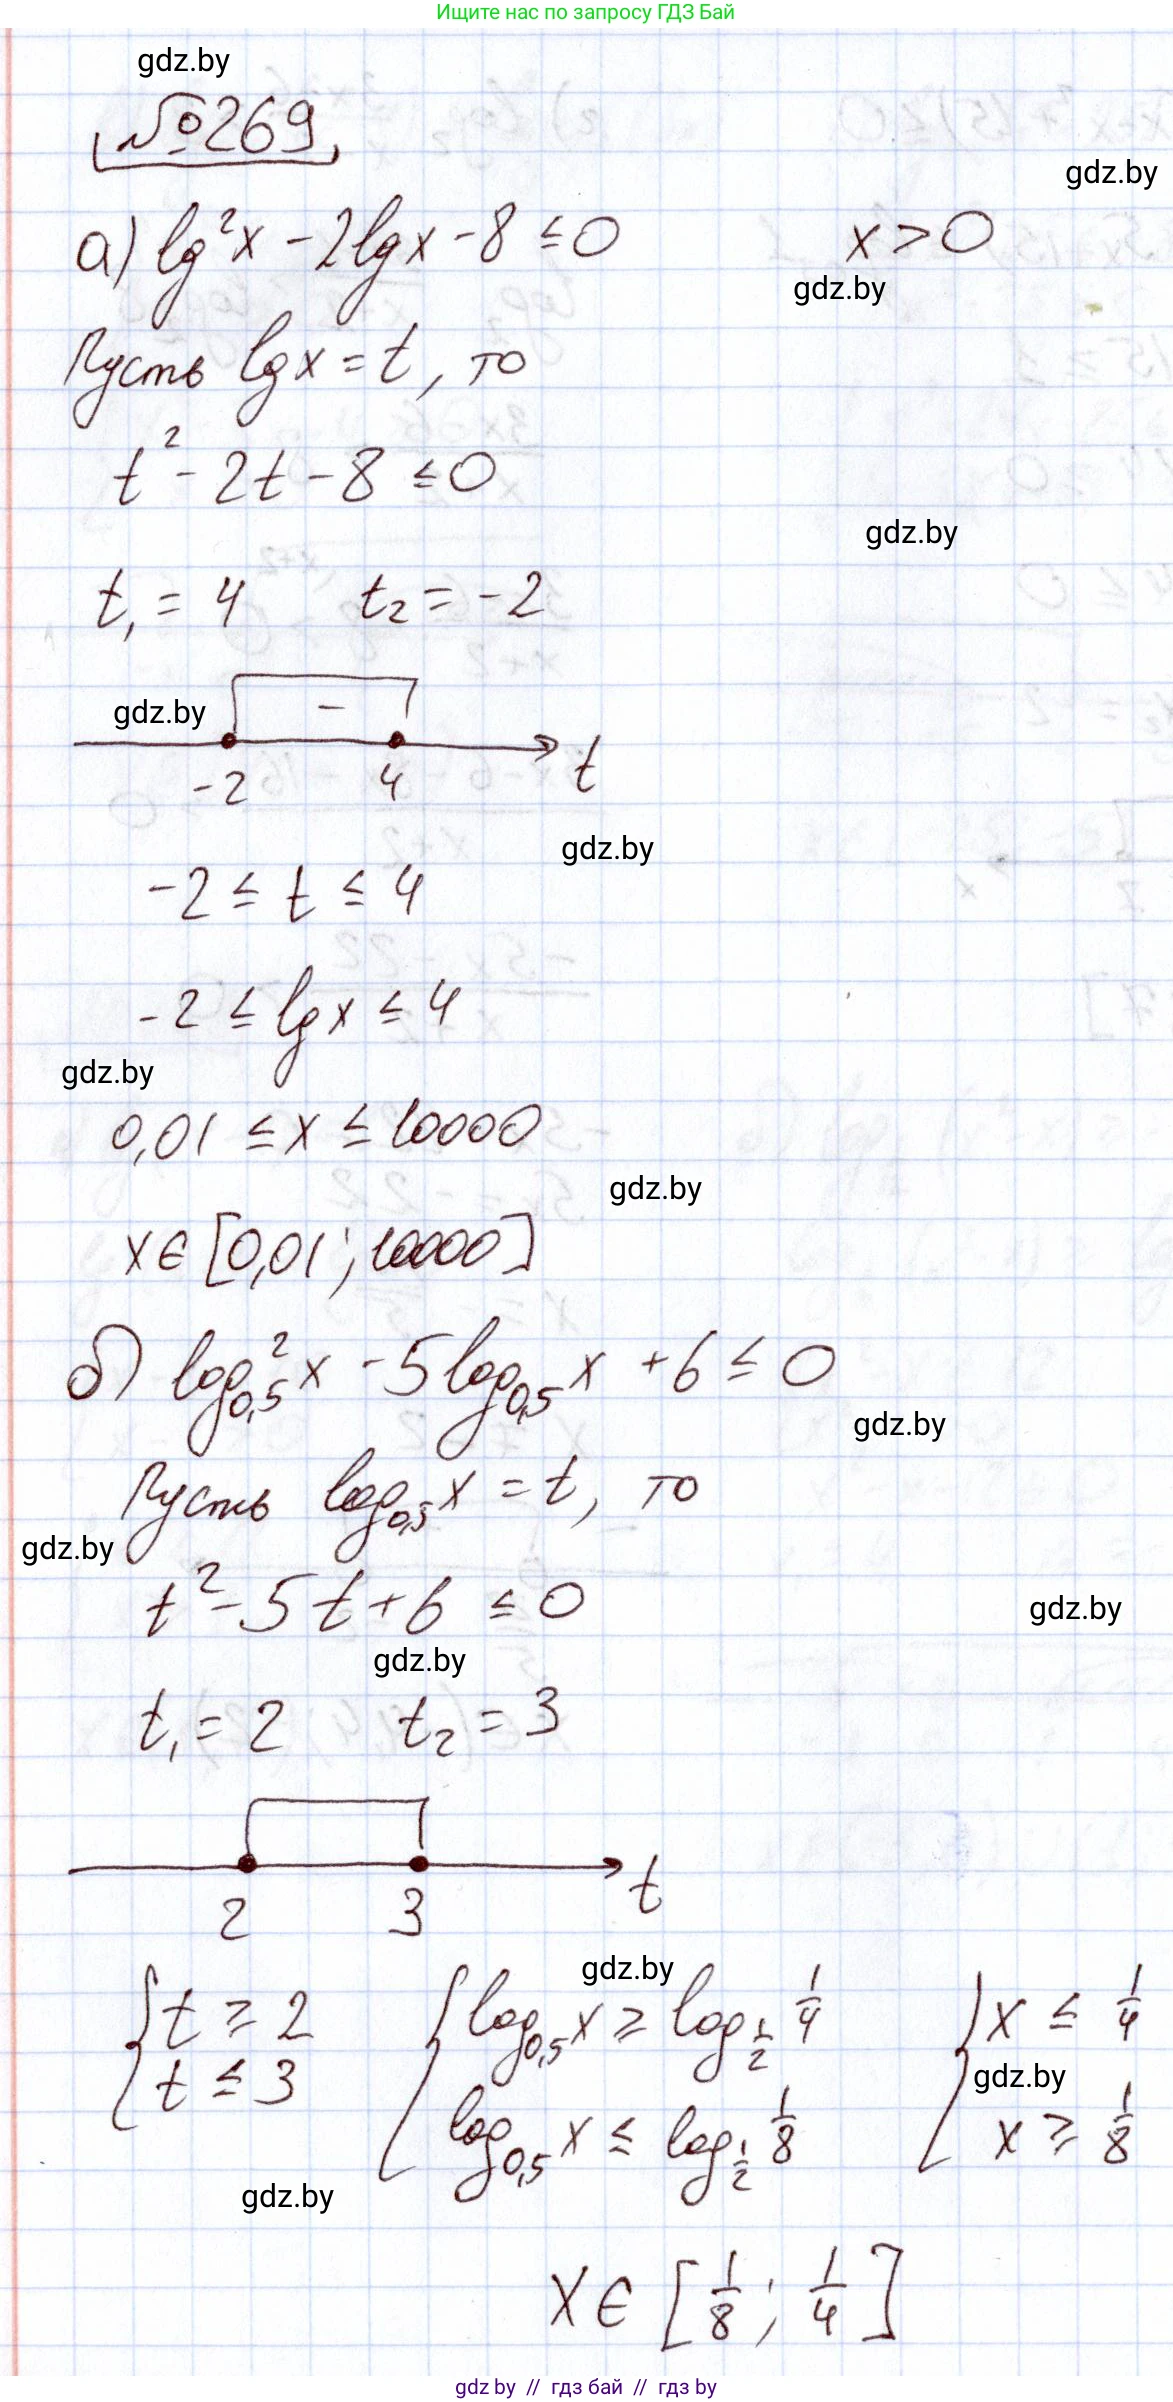 Ищите нас по запросу ГДЗ Бай
gdz.by
№269
gdz.by
а) lg²x - 2lgx - 8 ≤ 0      x > 0
gdz.by
Пусть lgx = t, то
t² - 2t - 8 ≤ 0
gdz.by
t₁ = 4   t₂ = -2
gdz.by
-
-2   4   t
gdz.by
-2 ≤ t ≤ 4
-2 ≤ lgx ≤ 4
gdz.by
0,01 ≤ x ≤ 10000
gdz.by
x ∈ [0,01; 10000]
б) log²₀,₅x - 5log₀,₅x + 6 ≤ 0
gdz.by
Пусть log₀,₅x = t, то
gdz.by
t² - 5t + 6 ≤ 0
gdz.by
gdz.by
t₁ = 2   t₂ = 3
2   3   t
gdz.by
{ t ≥ 2   { log₀,₅x ≥ log_{1/2} 1/4   { x ≤ 1/4
gdz.by
t ≤ 3   log₀,₅x ≤ log_{1/2} 1/8   x ≥ 1/8
gdz.by
x ∈ [1/8; 1/4]
gdz by // гдз бай // гдз by